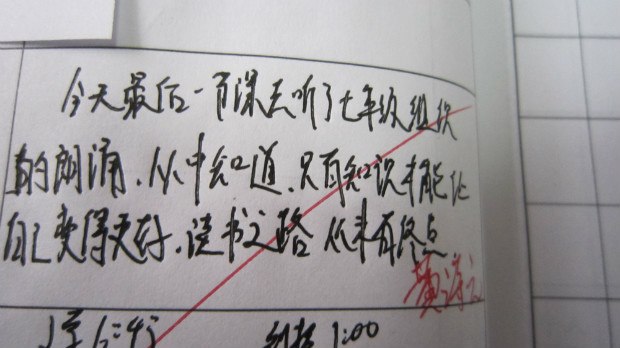 今天最后一节课去听了七年级组织
的朗诵,从中知道,只有知识才能让
自己变得更好,读书之路 从未有终点
1:00